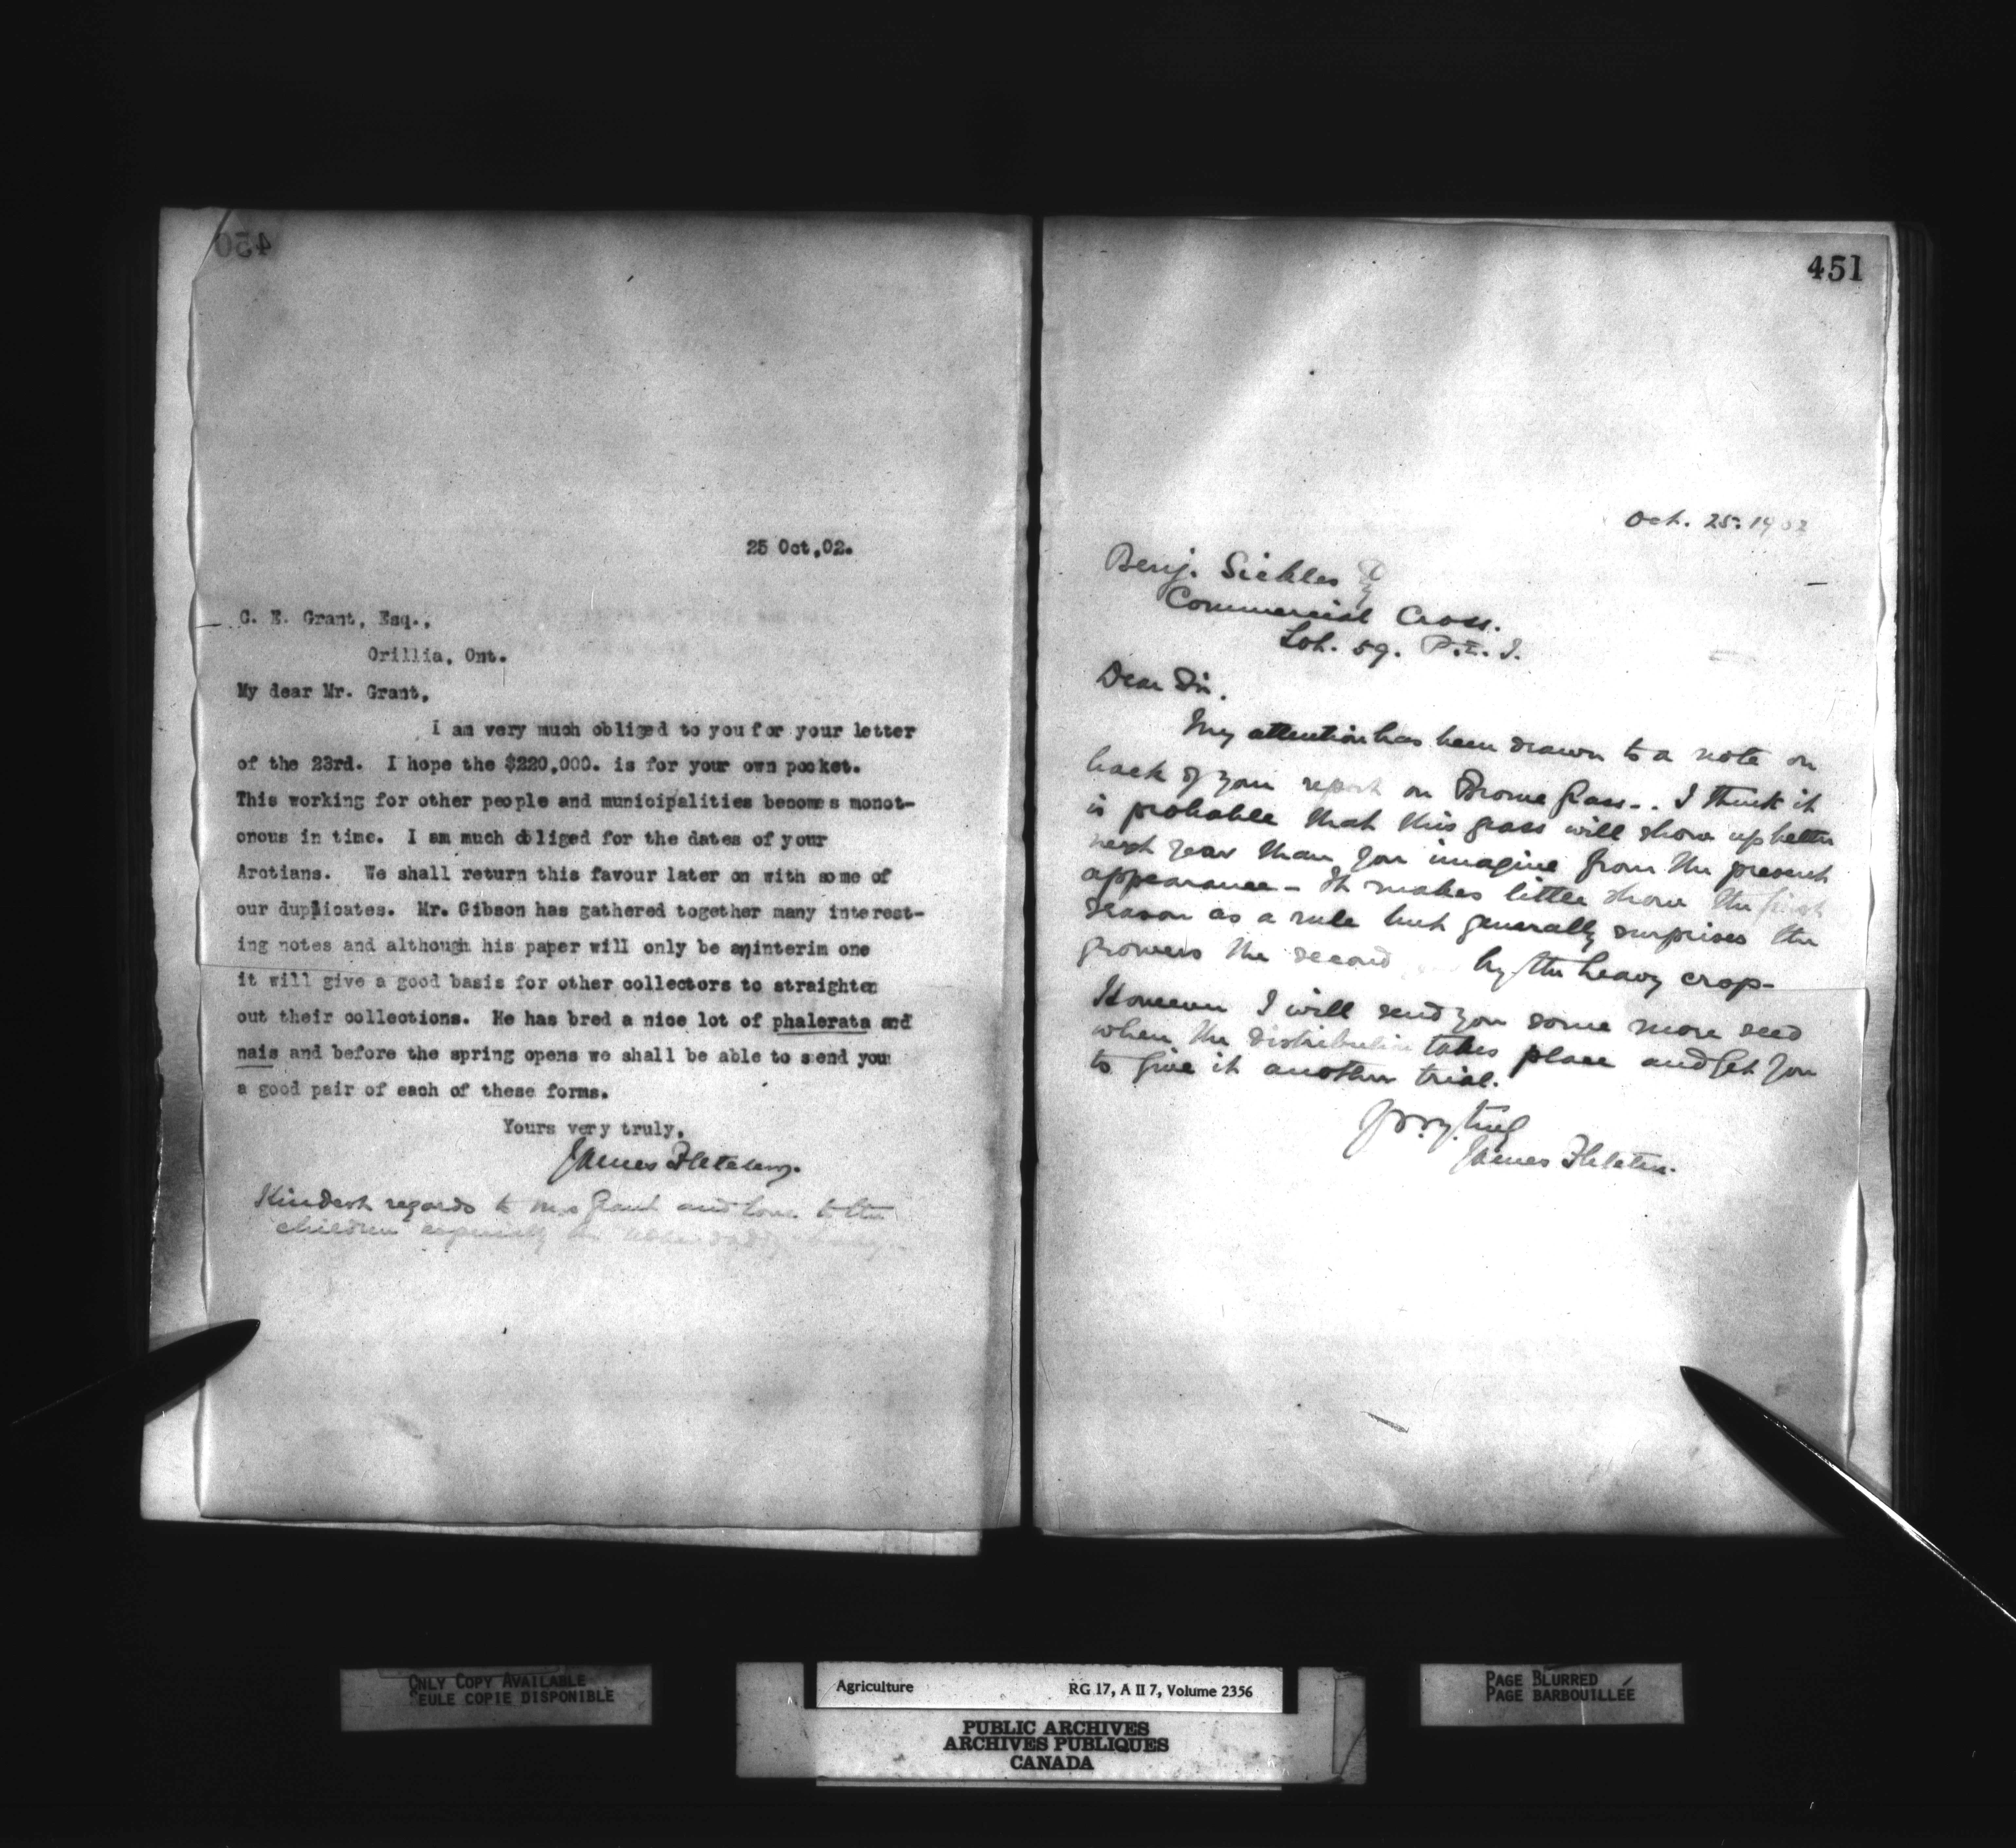 450
25 Oct,02.
C. E. Grant, Esq.,
Orillia, Ont.
My dear Mr. Grant,
I am very much obliged to you for your letter
of the 23rd. I hope the $220,000. is for your own pocket.
This working for other people and municipalities becomes monot-
onous in time. I am much obliged for the dates of your
Arctians. We shall return this favour later on with some of
our duplicates. Mr. Gibson has gathered together many interest-
ing notes and although his paper will only be an interim one
it will give a good basis for other collectors to straighten
out their collections. He has bred a nice lot of phalerata and
nais and before the spring opens we shall be able to send you
a good pair of each of these forms.
Yours very truly,
James Fletcher.
Kindest regards to Mrs Grant and love to the
children especially the
451
Oct. 25. 1902
Benj. Sickles
Commercial Cross.
Lot. 59. P.E.I.
Dear Sir.
My attention has been drawn to a note on
back of your report on Brome Grass.. I think it
is probable that this grass will show up better
next year than you imagine from the present
appearance - It makes little show the first
season as a rule but generally surprises the
growers the second by the heavy crop-
However I will send you some more seed
when the distribution takes place and get you
to give it another trial.
James Fletcher.
ONLY COPY AVAILABLE
SEULE COPIE DISPONIBLE
Agriculture RG 17, A II 7, Volume 2356
PUBLIC ARCHIVES
ARCHIVES PUBLIQUES
CANADA
PAGE BLURRED
PAGE BARBOUILLÉE